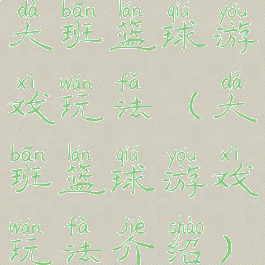 dà bān lán qiú yóu
大班篮球游
xì wán fǎ dà
戏玩法（大
bān lán qiú yóu xì
班篮球游戏
wán fǎ jiè shào
玩法介绍）